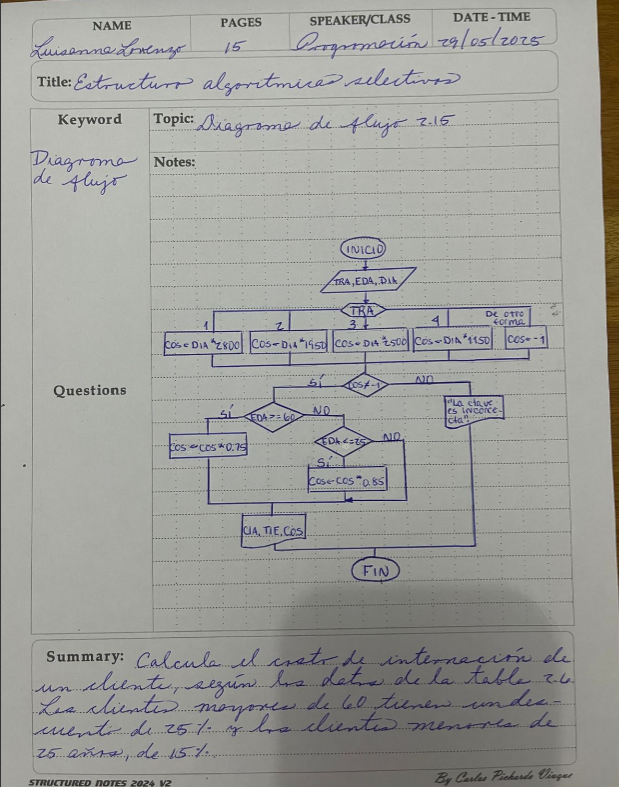 NAME PAGES SPEAKER/CLASS DATE - TIME
Luisanna Lorenzo 15 Programación 29/05/2025
Title: Estructuras algorítmicas selectivas
Keyword
Topic: Diagrama de flujo 2.15
Diagrama
de flujo
Notes:
INICIO
TRA, EDA, DIA
TRA
1 2 3 4 De otra
forma
COS ← DIA * 2800 COS ← DIA * 1950 COS ← DIA * 2500 COS ← DIA * 1150 COS ← -1
Questions
SÍ COS ≠ -1 NO
"La clave
es incorrec-
cta"
SÍ EDA >= 60 NO
COS ← COS * 0.75
EDA <= 25 NO
SÍ
COS ← COS * 0.85
CLA, TIE, COS
FIN
Summary: Calcula el costo de internación de
un cliente, según los datos de la tabla 2.6
Los clientes mayores de 60 tienen un des-
cuento de 25% y los clientes menores de
25 años, de 15%.
STRUCTURED NOTES 2024 V2 By Carlos Pichardo Viuque